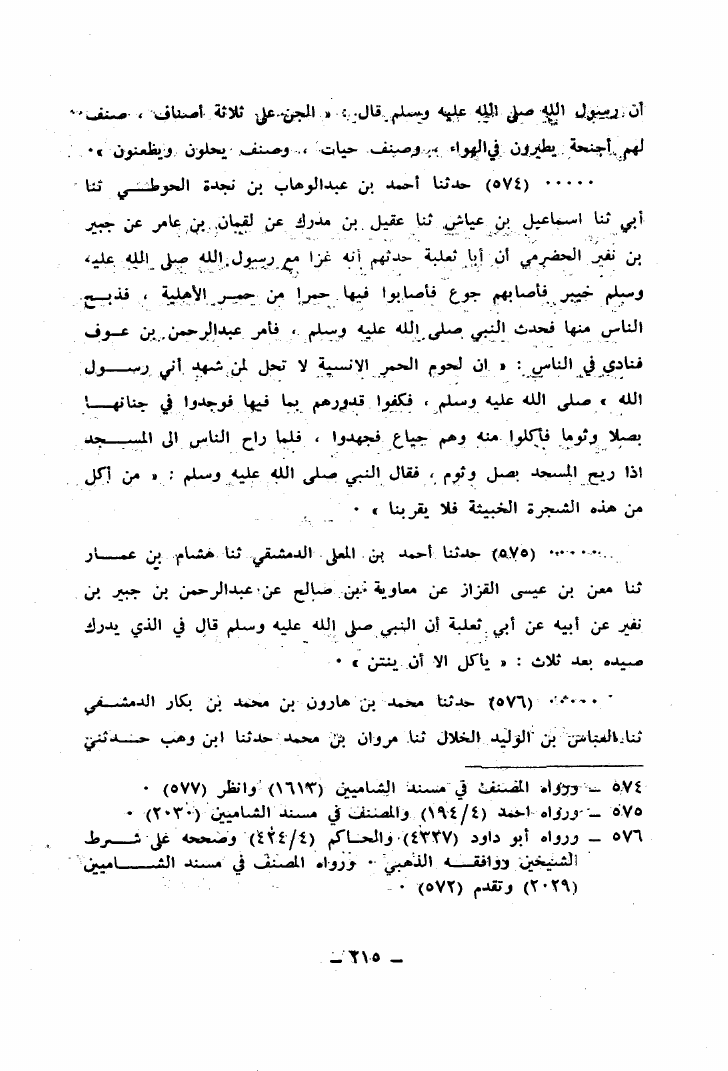 أن رسول الله صلى الله عليه وسلم قال : « الجن على ثلاثة أصناف ، صنف
لهم أجنحة يطيرون في الهواء ، وصنف حيات ، وصنف يحلون ويظعنون »٠
٠٠٠٠٠ (٥٧٤) حدثنا أحمد بن عبدالوهاب بن نجدة الحوطــي ثنا
أبي ثنا اسماعيل بن عياش ثنا عقيل بن مدرك عن لقمان بن عامر عن جبير
بن نفير الحضرمي أن أبا ثعلبة حدثهم أنه غزا مع رسول الله صلى الله عليه
وسلم خيبر فأصابهم جوع فأصابوا فيها حمرا من حمـر الأهلية ، فذبـح
الناس منها فحدث النبي صلى الله عليه وسلم ، فأمر عبدالرحمن بن عـوف
فنادى في الناس : « ان لحوم الحمر الانسية لا تحل لمن شهد أني رســول
الله » صلى الله عليه وسلم ، فكفوا قدورهم بما فيها فوجدوا في جنانهــا
بصلا وثوما فأكلوا منه وهم جياع فجهدوا ، فلما راح الناس الى المســجد
اذا ريح المسجد بصل وثوم ، فقال النبي صلى الله عليه وسلم : « من أكل
من هذه الشجرة الخبيثة فلا يقربنا » ٠
٠٠٠٠٠ (٥٧٥) حدثنا أحمد بن المعلى الدمشقي ثنا هشام بن عمـــار
ثنا معن بن عيسى القزاز عن معاوية بن صالح عن عبدالرحمن بن جبير بن
نفير عن أبيه عن أبي ثعلبة أن النبي صلى الله عليه وسلم قال في الذي يدرك
صيده بعد ثلاث : « يأكل الا أن ينتن » ٠
٠٠٠٠٠ (٥٧٦) حدثنا محمد بن هارون بن محمد بن بكار الدمشــقي
ثنا العباس بن الوليد الخلال ثنا مروان بن محمد حدثنا ابن وهب حــدثني
٥٧٤ ــ ورواه المصنف في مسند الشاميين (١٦١٣) وانظر (٥٧٧) ٠
٥٧٥ ــ ورواه احمد (١٩٤/٤) والمصنف في مسند الشاميين (٢٠٣٠) ٠
٥٧٦ ــ ورواه أبو داود (٤٣٣٧) والحـاكم (٤٢٤/٤) وصححه على شــرط
الشيخين ووافقــه الذهبي ٠ ورواه المصنف في مسند الشـــاميين
(٢٠٢٩) وتقدم (٥٧٢) ٠
ــ ٢١٥ ــ